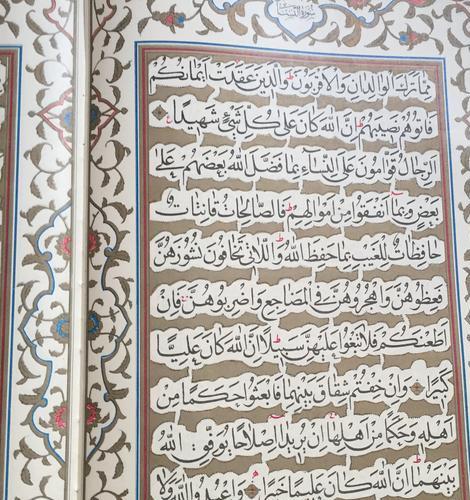 سورة النساء
مما ترك الوالدان والاقربون والذین عقدت ایمانکم
فاتوهم نصیبهم ان الله کان علی کل شیء شهیدا
الرجال قوامون علی النساء بما فضل الله بعضهم علی
بعض وبما انفقوا من اموالهم فالصالحات قانتات
حافظات للغیب بما حفظ الله واللاتی تخافون نشوزهن
فعظوهن واهجروهن فی المضاجع واضربوهن فان
اطعنکم فلا تبغوا علیهن سبیلا ان الله کان علیا
کبیرا وان خفتم شقاق بینهما فابعثوا حکما من
اهله وحکما من اهلها ان یریدا اصلاحا یوفق الله
بینهما ان الله کان علیما خبیرا واعبدوا الله ولا